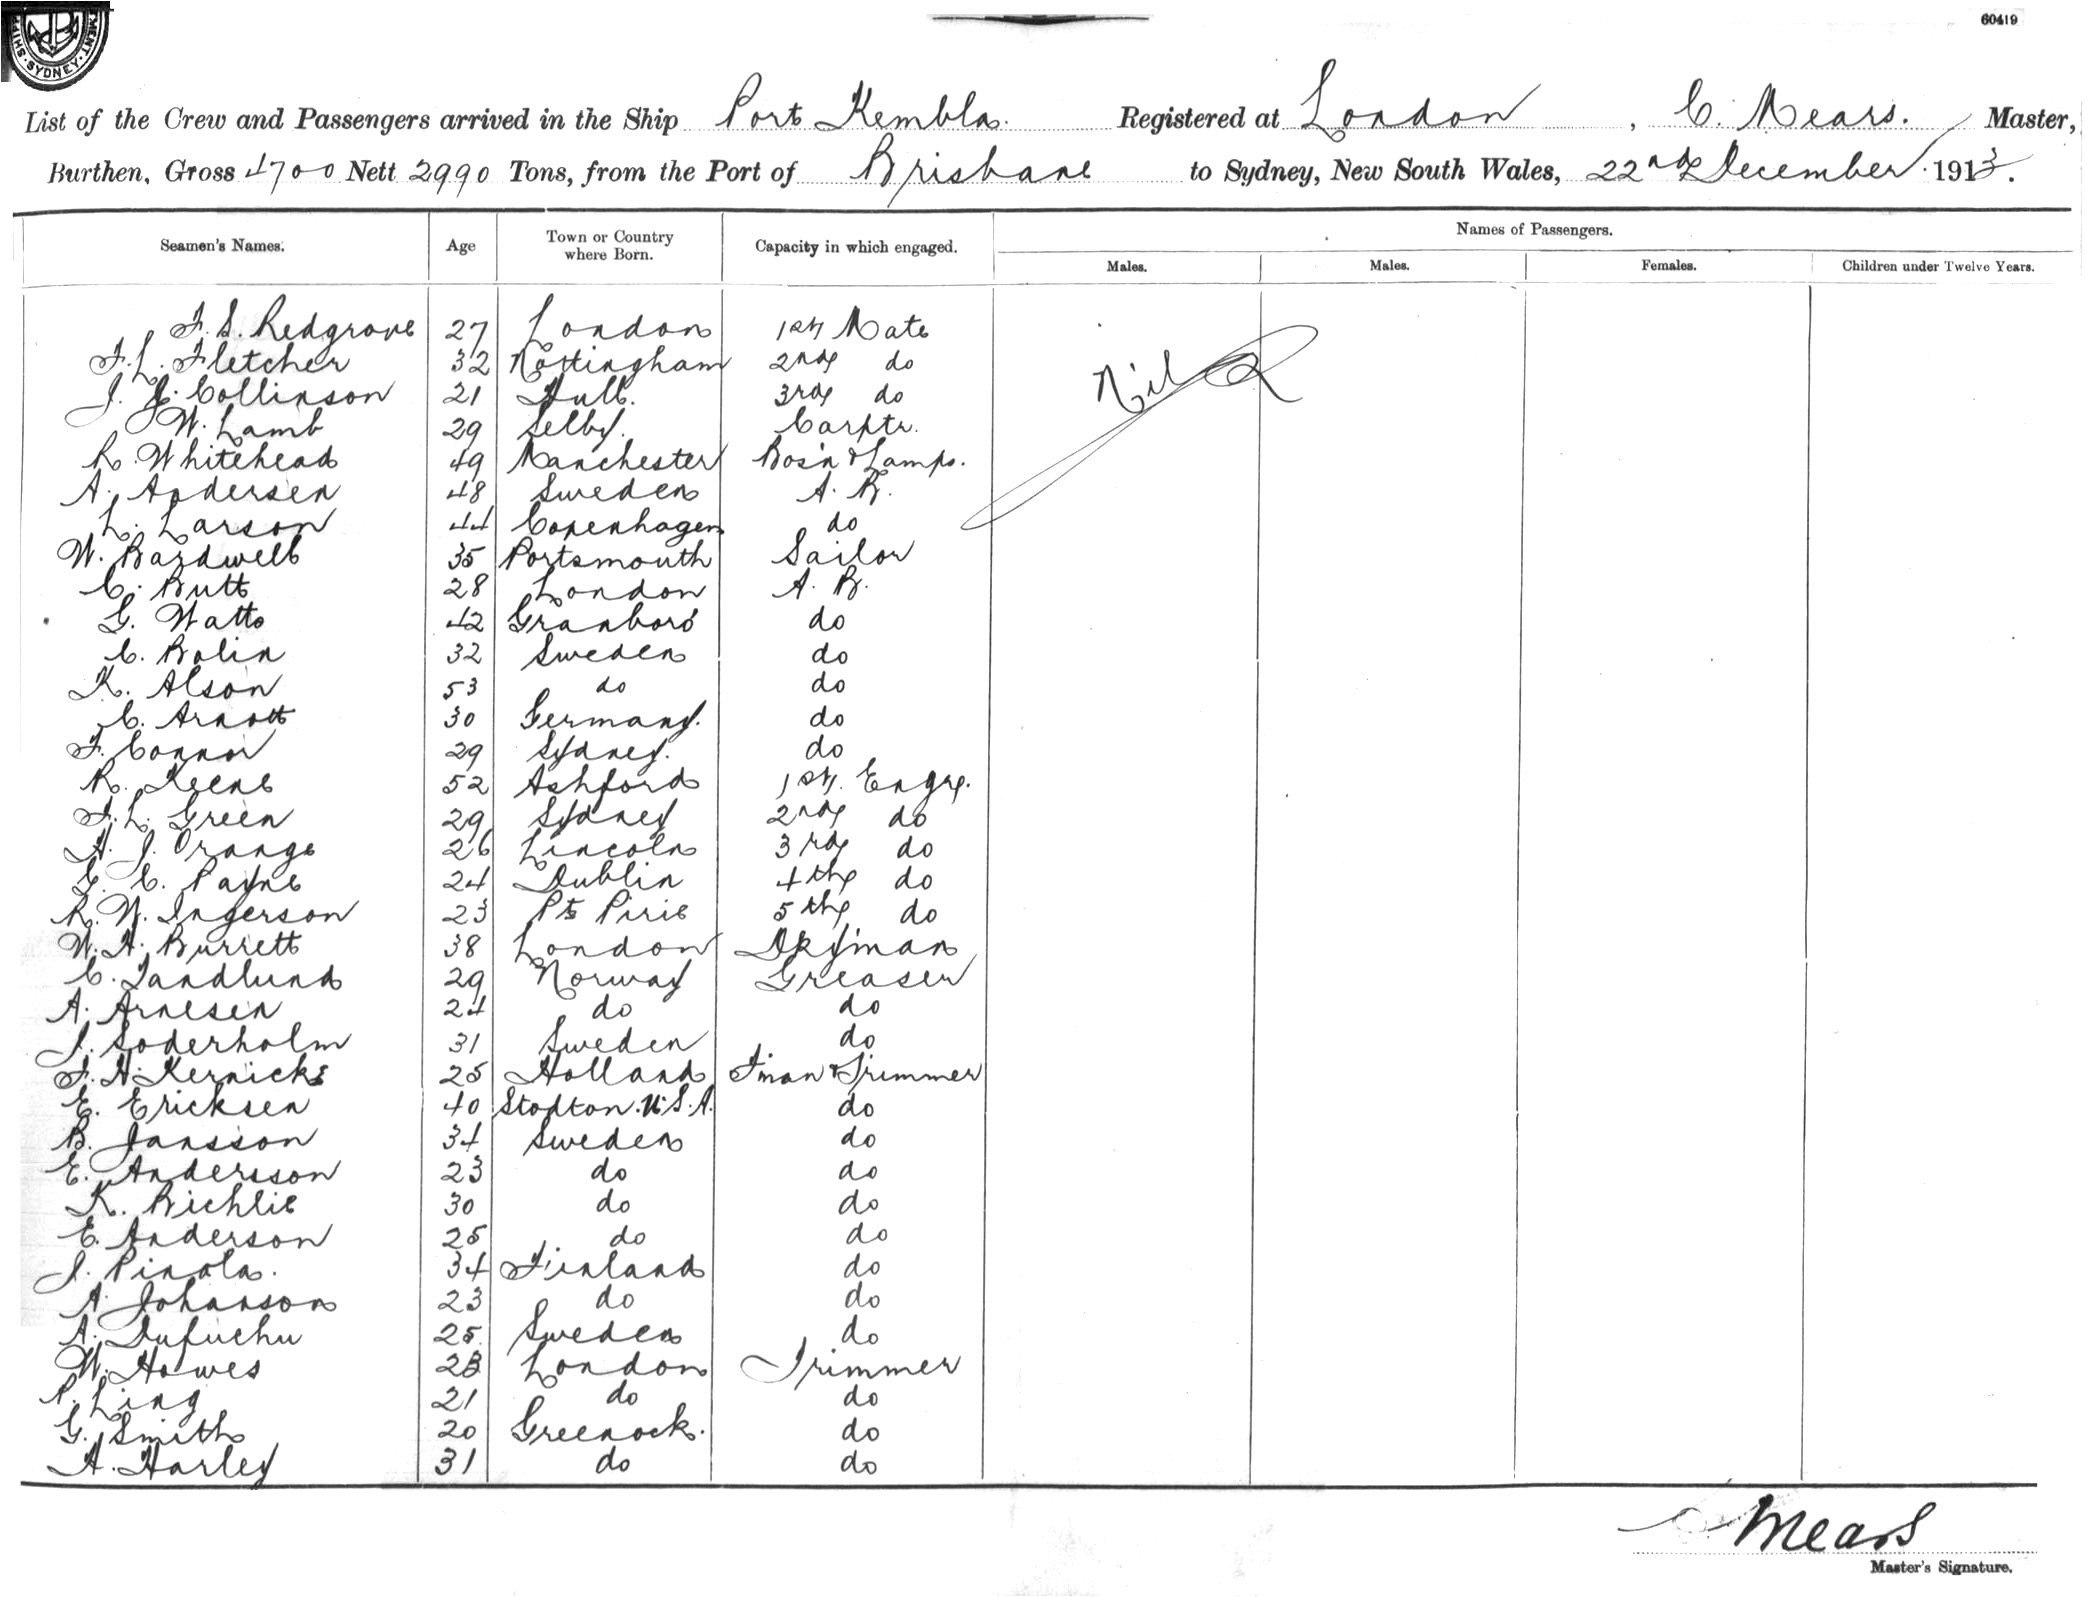 MENT. SYDNEY. SHIP
60419
List of the Crew and Passengers arrived in the Ship Port Kembla. Registered at London, C. Mears. Master,
Burthen, Gross 4700 Nett 2990 Tons, from the Port of Brisbane to Sydney, New South Wales, 22nd December 1913.
Names of Passengers.
Seamen's Names. Age Town or Country where Born. Capacity in which engaged. Males. Males. Females. Children under Twelve Years.
F. S. Redgrove 27 London 1st Mate
F. L. Fletcher 32 Nottingham 2nd do
J. Collinson 21 Hull. 3rd do
W. Lamb 29 Selby. Carptr.
R. Whitehead 49 Manchester Bos'n & Lamps.
A. Andersen 48 Sweden A. B.
L. Larson 44 Copenhagen do
W. Bardwell 35 Portsmouth Sailor
C. Butt 28 London A. B.
G. Watts 42 Granboro' do
C. Bolin 32 Sweden do
K. Alson 53 do do
C. Arnott 30 Germany. do
F. Connor 29 Sydney. do
R. Keene 52 Ashford 1st. Engr.
F. L. Green 29 Sydney 2nd do
H. J. Orange 26 Lincoln 3rd do
G. C. Payne 24 Dublin 4th do
R. W. Ingerson 23 Pt Pirie 5th do
W. H. Burrett 38 London Dkyman
C. Sandlund 29 Norway Greaser
A. Arnesen 24 do do
J. Soderholm 31 Sweden do
F. H. Kernicks 25 Holland F'man & Trimmer
E. Ericksen 40 Stodton. U.S.A. do
B. Jansson 34 Sweden do
E. Andersson 23 do do
K. Bichlie 30 do do
E. Anderson 25 do do
J. Pinola. 34 Finland do
A. Johanson 23 do do
A. Dufuchu 25 Sweden do
W. Howes 23 London Trimmer
P. Ling 21 do do
G. Smith 20 Greenock. do
H. Harley 31 do do
Nil
Mears
Master's Signature.